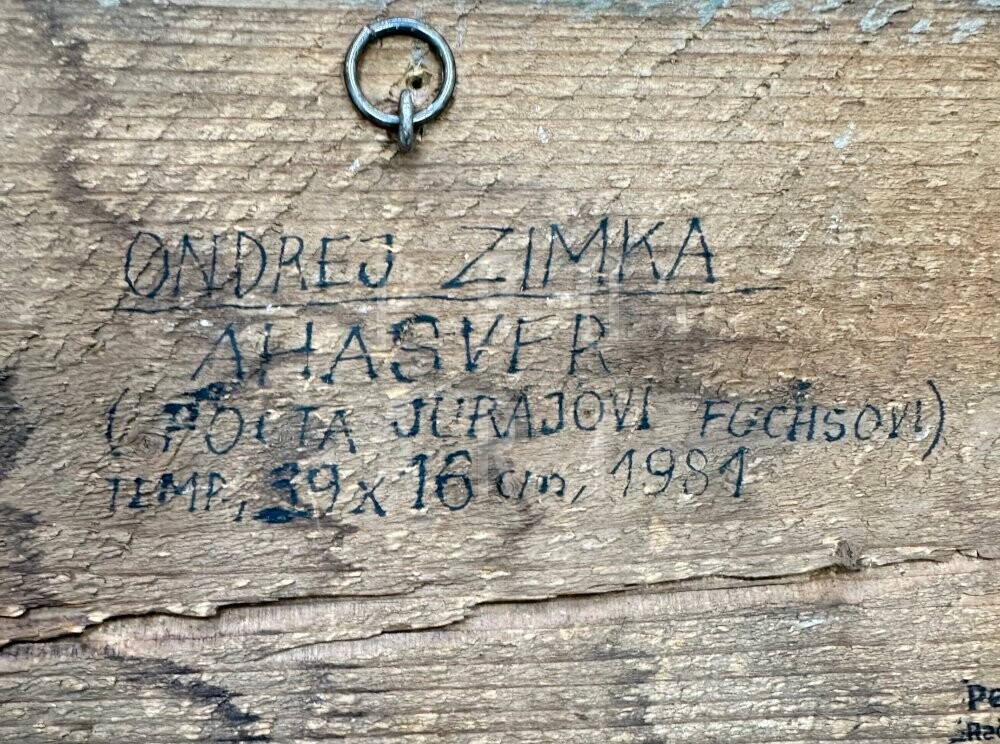 ONDREJ ZIMKA
AHASVER
(POCTA JURAJOVI FUCHSOVI)
TEMP, 39 x 16 cm, 1981